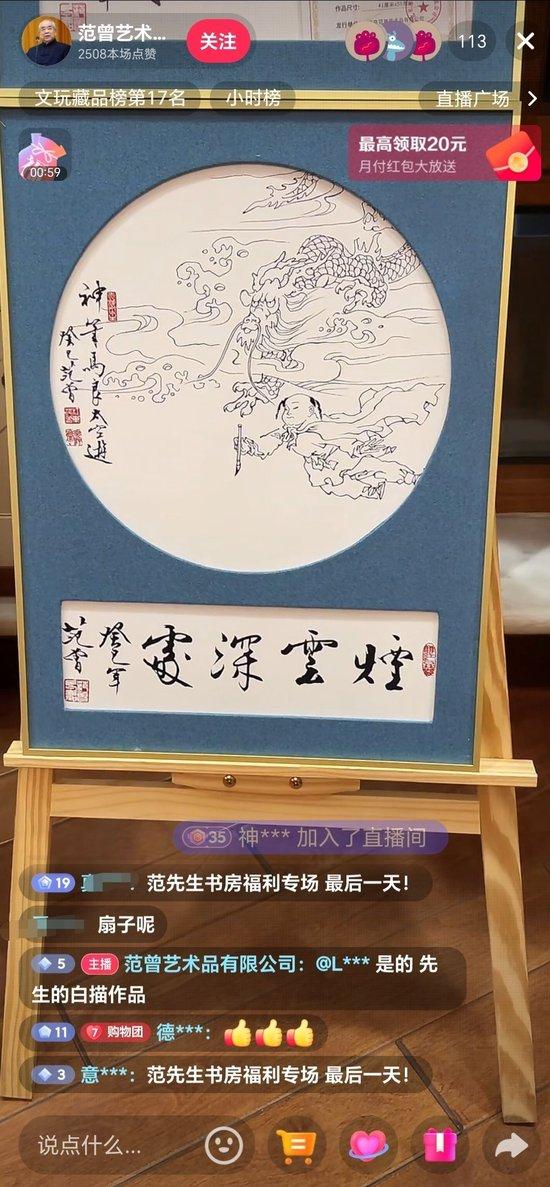 作品尺寸:
发行单位:
范曾艺术...
2508本场点赞
关注
113
文玩藏品榜第17名
小时榜
直播广场 >
00:59
最高领取20元
月付红包大放送
神筆馬良太空遊
癸巳范曾
煙雲深處
癸巳年
范曾
35 神*** 加入了直播间
19
范先生书房福利专场 最后一天!
扇子呢
5 主播 范曾艺术品有限公司: @L*** 是的 先
生的白描作品
11 7 购物团 德***: 👍👍👍
3 意***: 范先生书房福利专场 最后一天!
说点什么...